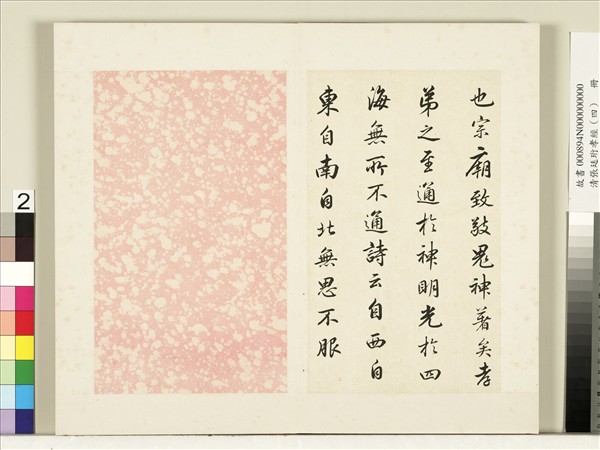 也宗廟致敬鬼神著矣孝
弟之至通於神明光於四
海無所不通詩云自西自
東自南自北無思不服
故書 000894N000000000
清張廷珩孝經（四） 冊
2